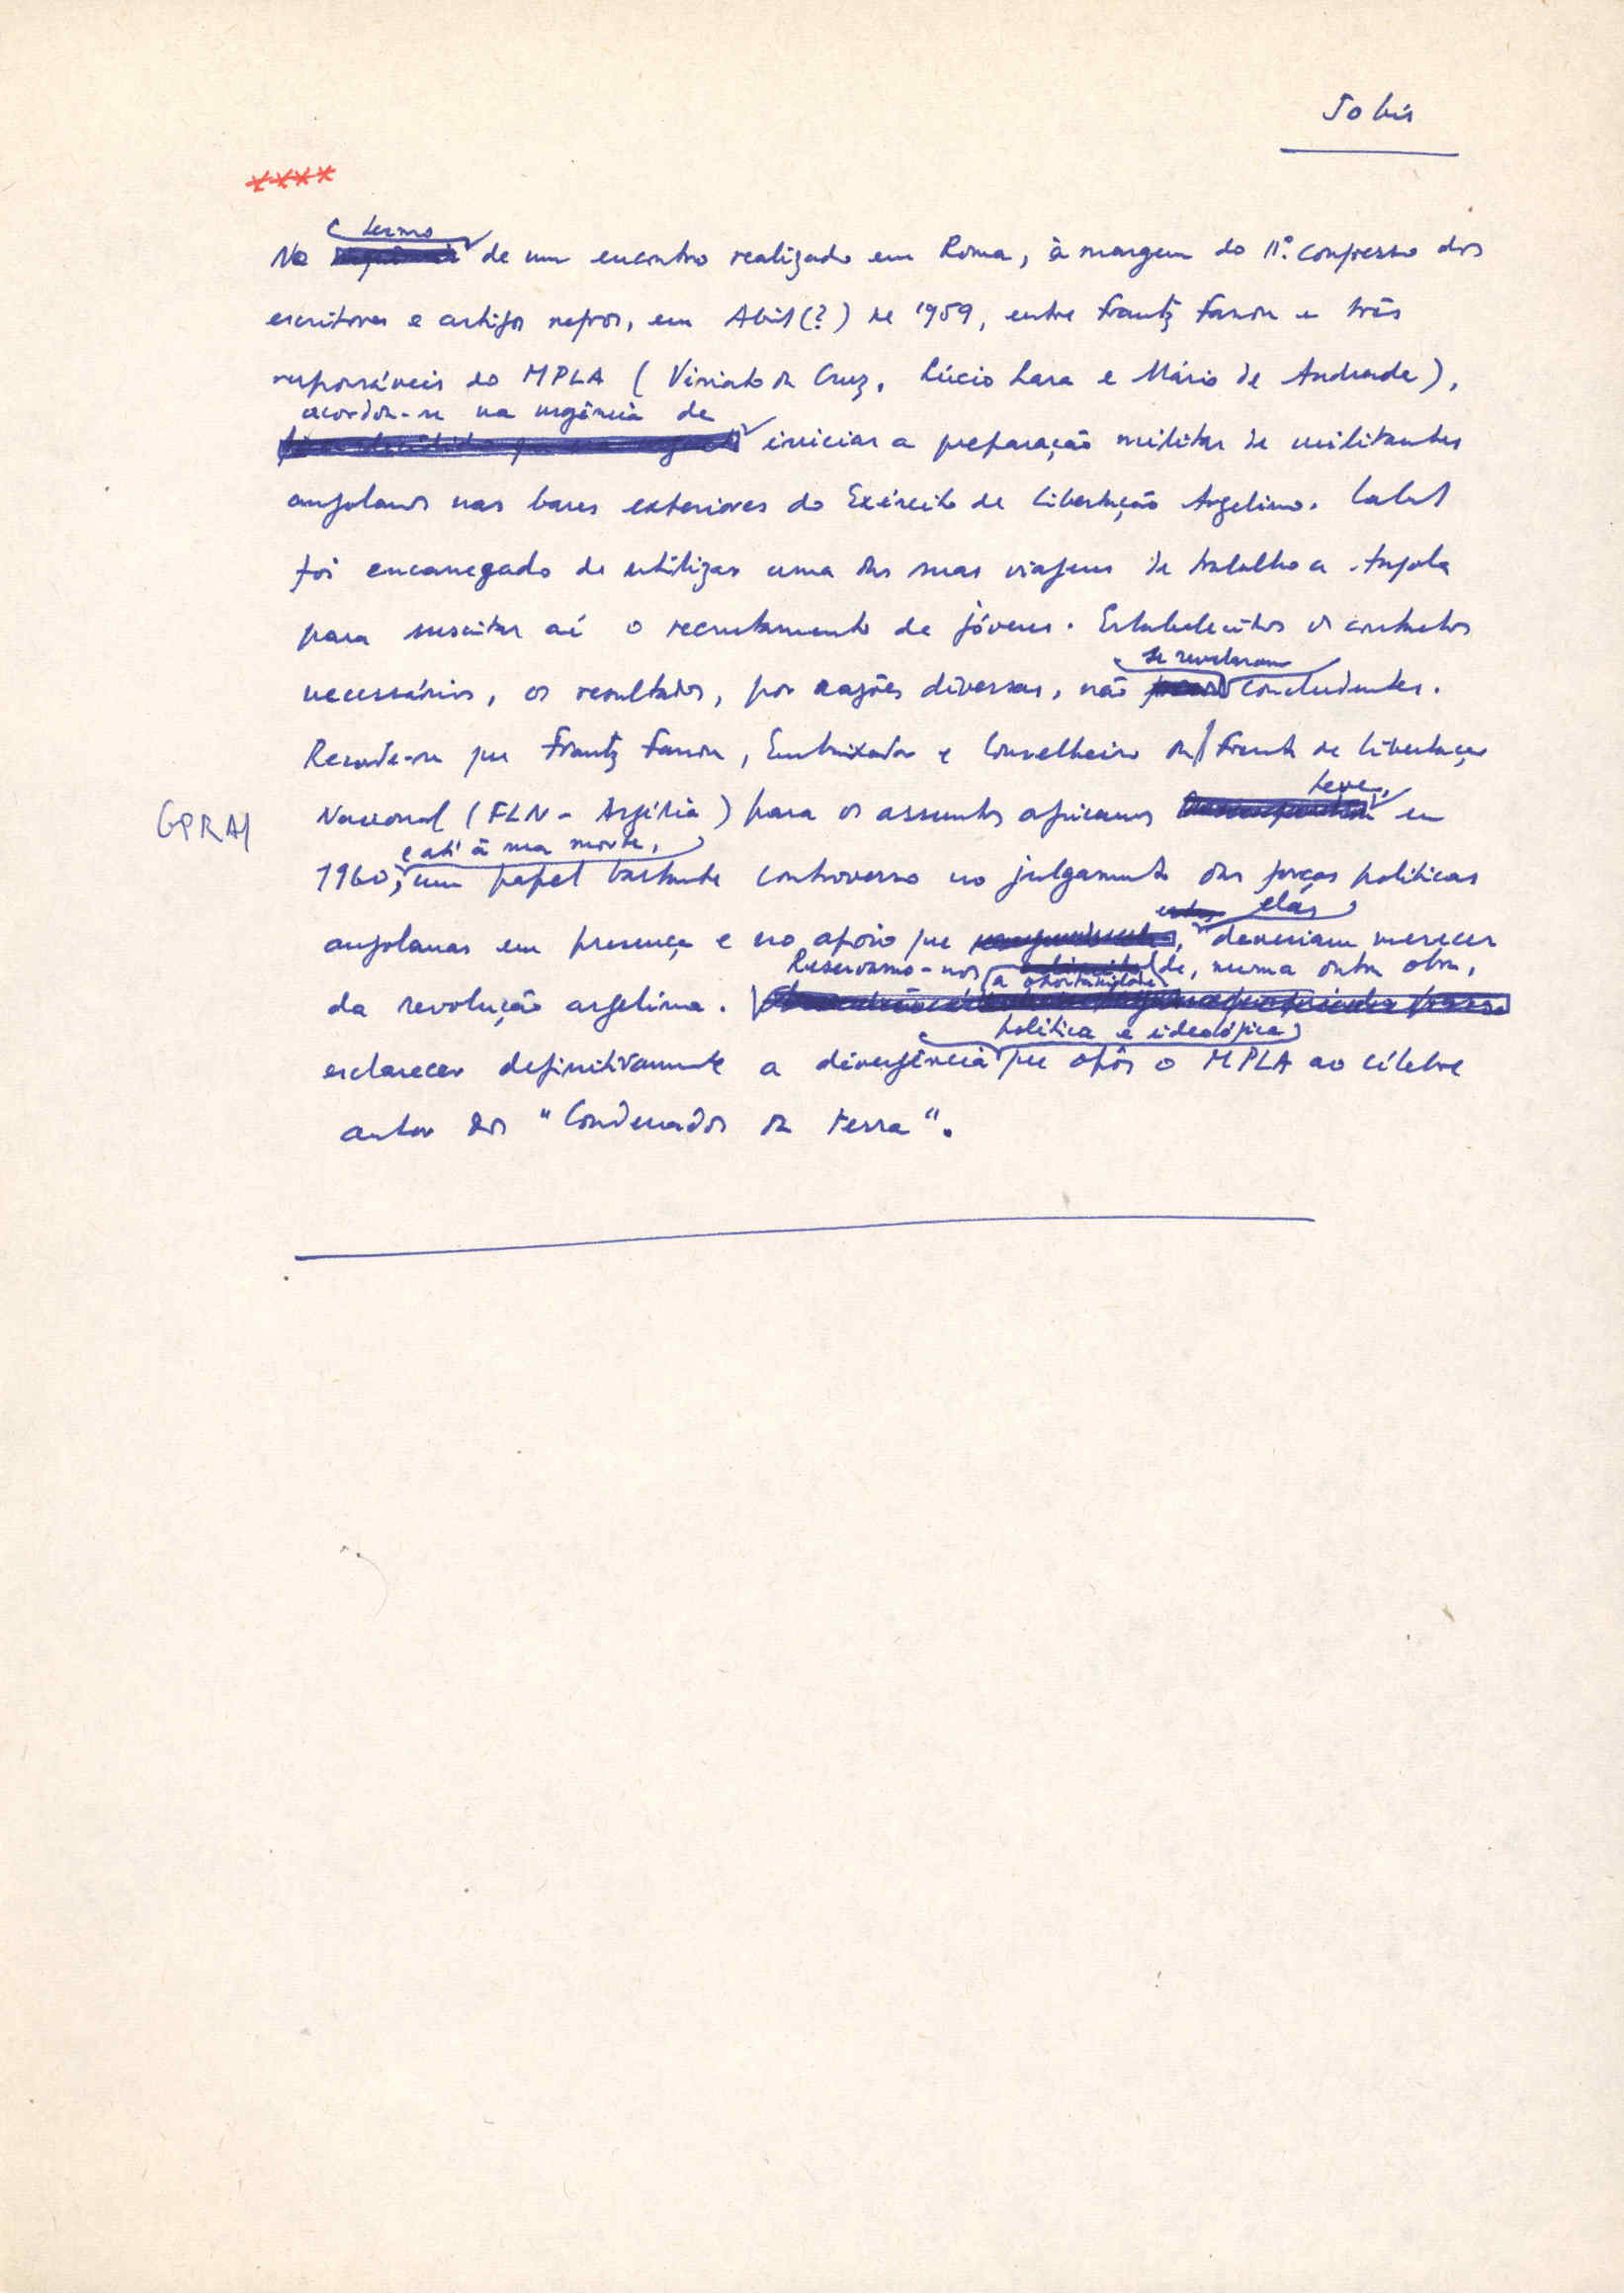 50 bis
××××
No termo de um encontro realizado em Roma, à margem do IIº. congresso dos
escritores e artistas negros, em Abril (?) de 1959, entre Frantz Fanon e três
responsáveis do MPLA (Viriato da Cruz, Lúcio Lara e Mário de Andrade),
acordou-se na urgência de iniciar a preparação militar de militantes
angolanos nas bases exteriores do Exército de Libertação Argelino. Cabral
foi encarregado de utilizar uma das suas viagens de trabalho a Angola
para suscitar aí o recrutamento de jóvens. Estabelecidos os contactos
necessários, os resultados, por razões diversas, não se revelaram concludentes.
Recorde-se que Frantz Fanon, Embaixador e Conselheiro da Frente de Libertação
GPRA/ Nacional (FLN - Argélia) para os assuntos africanos teve, em
1960, e até à sua morte, um papel bastante controverso no julgamento das forças políticas
angolanas em presença e no apoio que elas deveriam merecer
da revolução argelina. Reservamo-nos a oportunidade de, numa outra obra,
esclarecer definitivamente a divergência política e ideológica que opôs o MPLA ao célebre
autor dos "Condenados da terra".